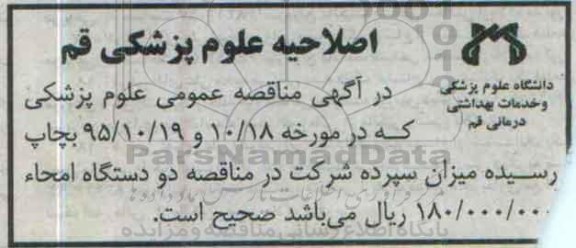 اصلاحیه علوم پزشکی قم
دانشگاه علوم پزشکی
وخدمات بهداشتی
درمانی قم
در آگهی مناقصه عمومی علوم پزشکی
که در مورخه ۱۰/۱۸ و ۹۵/۱۰/۱۹ بچاپ
رسیده میزان سپرده شرکت در مناقصه دو دستگاه امحاء
۱۸۰/۰۰۰/۰۰۰ ریال می‌باشد صحیح است.
ParsNamadData
پایگاه اطلاع رسانی مناقصه و مزایده